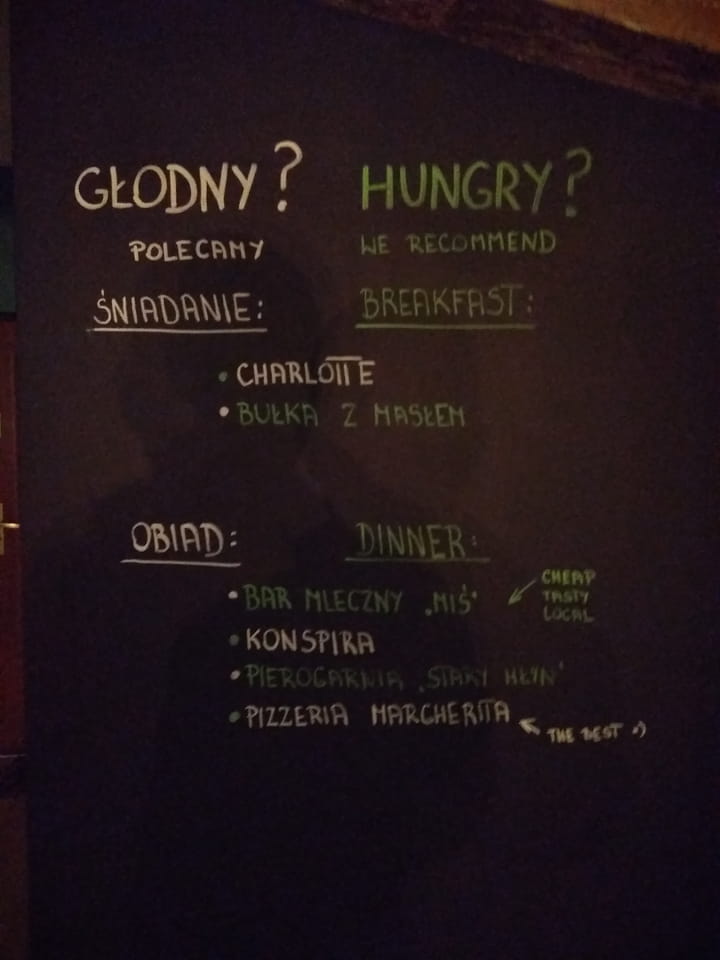 GŁODNY? HUNGRY?
POLECAMY WE RECOMMEND
ŚNIADANIE: BREAKFAST:
• CHARLOTTE
• BUŁKA Z MASŁEM
OBIAD: DINNER:
• BAR MLECZNY „MIŚ"
CHEAP
TASTY
LOCAL
• KONSPIRA
• PIEROGARNIA „STARY MŁYN"
• PIZZERIA MARGHERITA
THE BEST :)